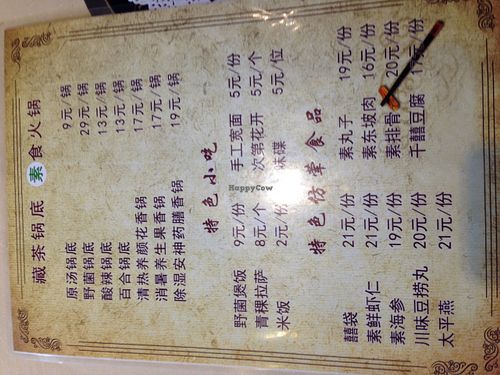 藏茶锅底 素食火锅
原汤锅底 9元/锅
野菌锅底 29元/锅
酸辣锅底 13元/锅
百合锅底 13元/锅
清热养颜花香锅 17元/锅
消暑养生果香锅 17元/锅
除湿安神药膳香锅 19元/锅
特色小吃
野菌煲饭 9元/份 手工宽面 5元/份
青稞拉萨 8元/个 次第花开 5元/个
米饭 2元/份 味碟 5元/位
特色仿荤食品
囍袋 21元/份 素丸子 19元/份
素鲜虾仁 21元/份 素东坡肉 16元/份
素海参 19元/份 素排骨 20元/份
川味豆捞丸 20元/份 千囍豆腐 17元/份
太平燕 21元/份
HappyCow